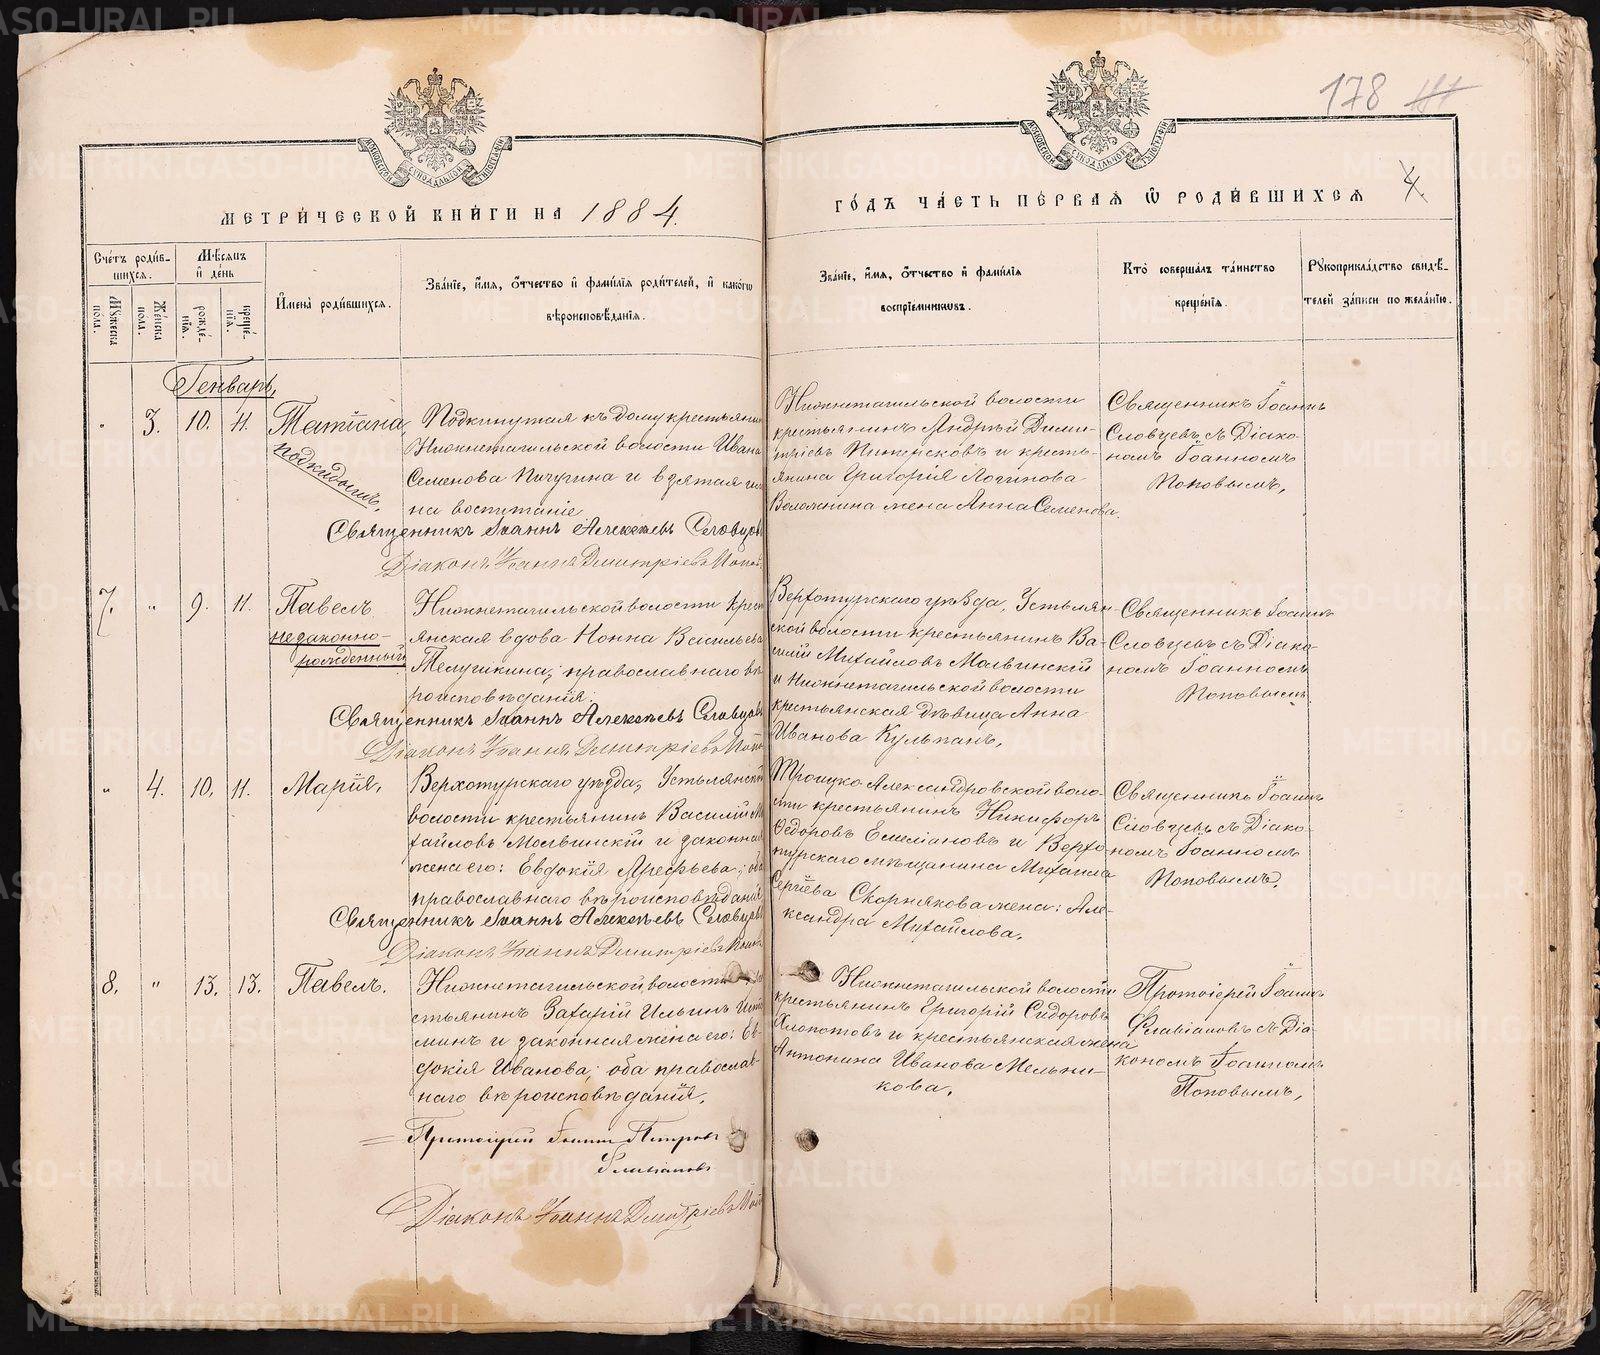 178
4
МЕТРИЧЕСКОЙ КНИГИ НА 1884.
ГОДЪ ЧАСТЬ ПЕРВАЯ Ѿ РОДИВШИХСЯ
Счетъ родив-
шихся.
Мѣсяцъ
и день
Мужеска
пола.
Женска
пола.
рожде-
нія.
креще-
нія.
Имена родившихся.
Званіе, имя, отчество и фамилія родителей, и какого
вѣроисповѣданія.
Званіе, имя, отчество и фамилія
воспріемниковъ.
Кто совершалъ таинство
крещенія.
Рукоприкладство свидѣ-
телей записи по желанію.
Генварь,
„ 3. 10. 11.
Татіана,
подкидышъ,
Подкинутая къ дому крестьянин
Нижнетагильской волости Ивана
Семенова Пичугина и взятая им
на воспитаніе
Священникъ Іоаннъ Алексѣевъ Словцовъ
Діаконъ Іоаннъ Димитріевъ Попов
Нижнетагильской волости
крестьянинъ Андрей Дими-
тріевъ и кресть-
янина Григорія Логинова
Воложнина жена Анна Семенова.
Священникъ Іоаннъ
Словцевъ съ Діако-
номъ Іоанномъ
Поповымъ,
7. „ 9. 11.
Павелъ
незаконно-
рожденный
Нижнетагильской волости крест
янская вдова Нонна Васильева
Телушкина, православнаго вѣ
роисповѣданія.
Священникъ Іоаннъ Алексѣевъ Словцовъ
Діаконъ Іоаннъ Димитріевъ Попов
Верхотурскаго уѣзда, Устьлян-
ской волости крестьянинъ Ва-
силій Михайловъ Мольвинскій
и Нижнетагильской волости
крестьянская дѣвица Анна
Иванова Кульпанъ,
Священникъ Іоаннъ
Словцевъ съ Діако-
номъ Іоанномъ
Поповымъ
„ 4. 10. 11.
Марія,
Верхотурскаго уѣзда, Устьлянской
волости крестьянинъ Василій Ми
хайловъ Мольвинскій и законная
жена его: Евдокія Арефьева; оба
православнаго вѣроисповѣданія
Священникъ Іоаннъ Алексѣевъ Словцовъ
Діаконъ Іоаннъ Димитріевъ Попов
Троицко Александровской воло-
сти крестьянинъ Никифоръ
Ѳедоровъ Емеліановъ и Верхо
турскаго мѣщанина Михаила
Сергіева Скорнякова жена: Але-
ксандра Михайлова,
Священникъ Іоаннъ
Словцевъ съ Діако-
номъ Іоанномъ
Поповымъ,
8. „ 13. 13.
Павелъ.
Нижнетагильской волости кре
стьянинъ Захарій Ильинъ
минъ и законная жена его: Ев-
докія Иванова; оба православ-
наго вѣроисповѣданія,
Протоіерей Іоаннъ Петровъ
Флавіановъ
Діаконъ Іоаннъ Дмитріевъ Попов
Нижнетагильской волости
крестьянинъ Григорій Сидоровъ
Хлопотовъ и крестьянская жена
Антонина Иванова Мельни-
кова,
Протоіерей Іоаннъ
Флавіановъ съ Діа-
кономъ Іоанномъ
Поповымъ,
METRIKI.GASO-URAL.RU